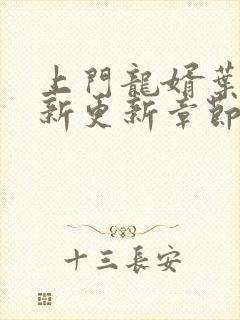 上門龍婿葉
新更新章節
十三長安